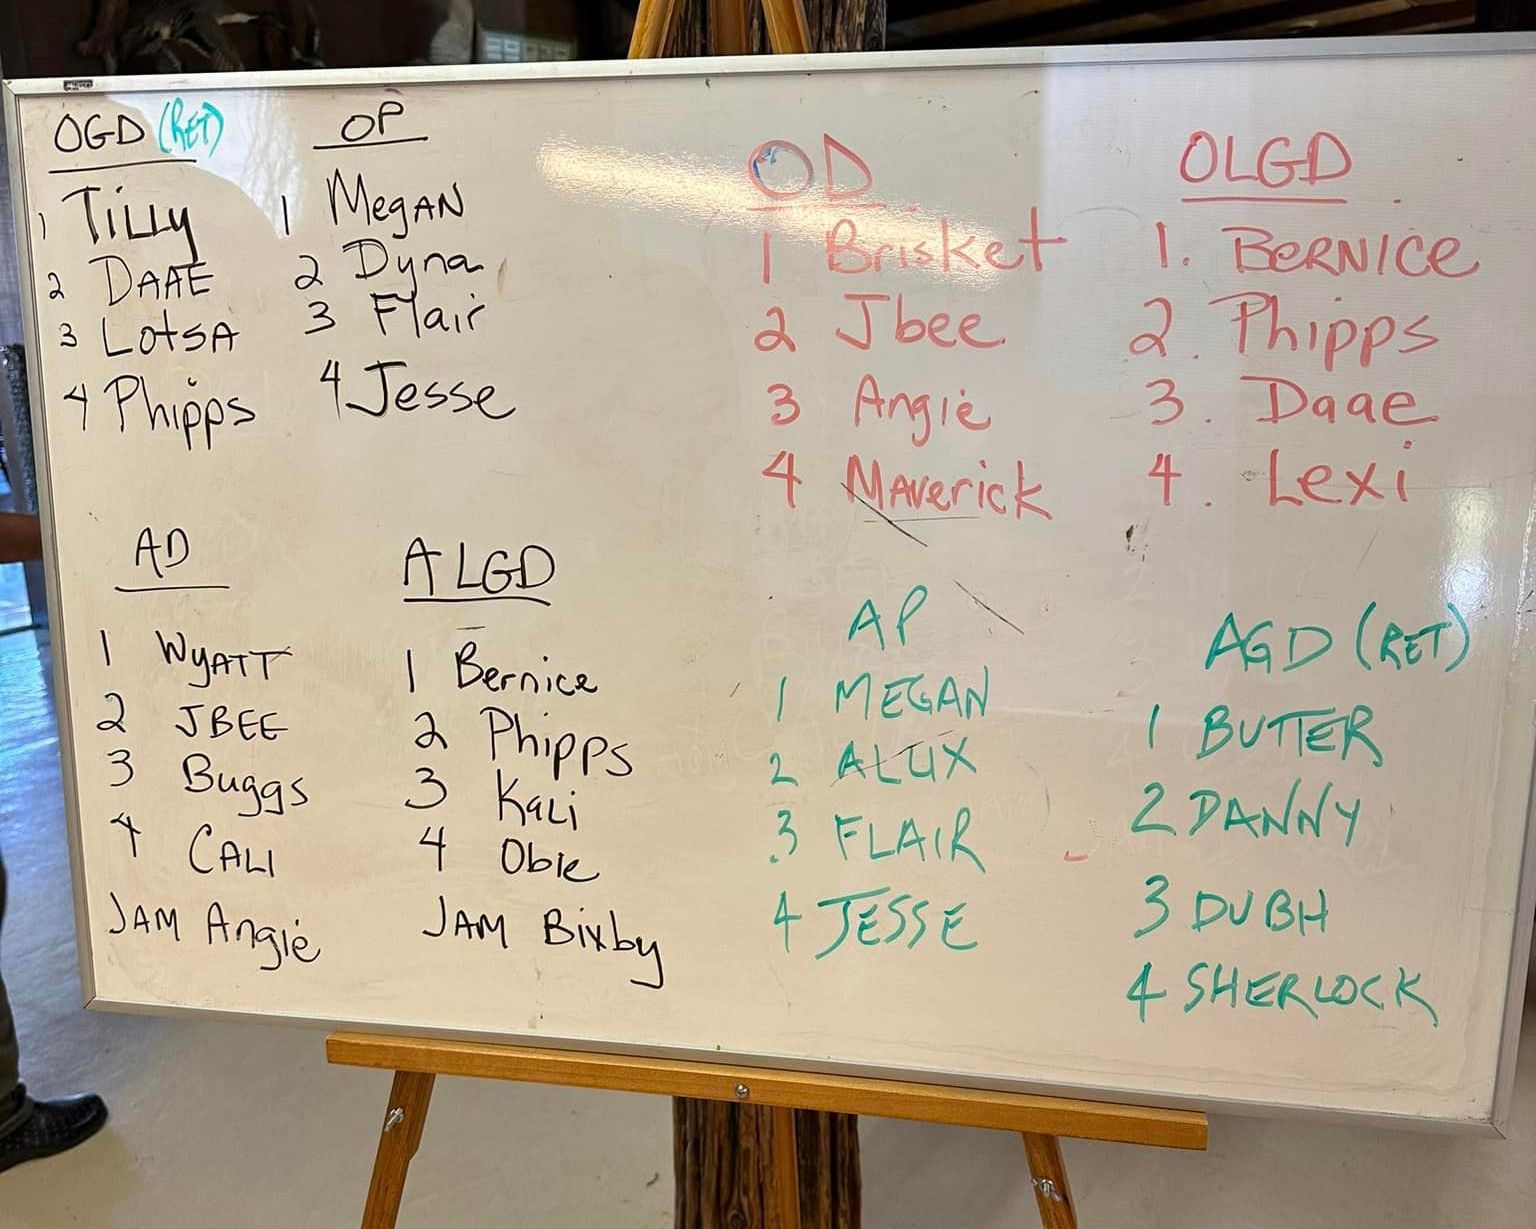 OGD (RET)
1 TiLLy
2 DAAE
3 LotsA
4 Phipps
OP
1 MegAN
2 Dyna
3 Flair
4 Jesse
OD
1 Brisket
2 Jbee
3 Angie
4 MAverick
OLGD
1. BeRNICe
2. Phipps
3. Daae
4. Lexi
AD
1 WyATT
2 JBEE
3 Buggs
4 CALI
JAM Angie
ALGD
1 Bernice
2 Phipps
3 KaLi
4 Obie
JAM Bixby
AP
1 MEGAN
2 ALUX
3 FLAIR
4 JESSE
AGD (RET)
1 BUTTER
2 DANNY
3 DUBH
4 SHERLOCK